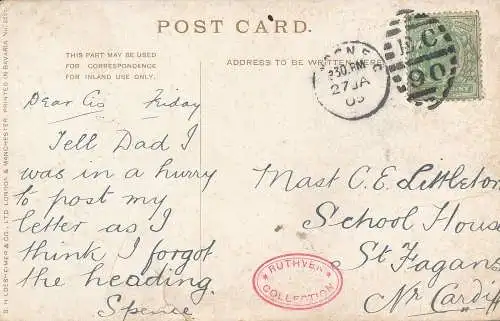 POST CARD.
THIS PART MAY BE USED
FOR CORRESPONDENCE
FOR INLAND USE ONLY.
ADDRESS TO BE WRITTEN HERE
.30.PM
27 JA
E.C
90
Dear Cis Friday
Tell Dad I
was in a hurry
to post my
letter as I
think I forgot
the heading.
Spence
Mast C. E. Littleton
School House
St Fagans
Nr Cardiff
RUTHVEN
COLLECTION
MANCHESTER. PRINTED IN BAVARIA